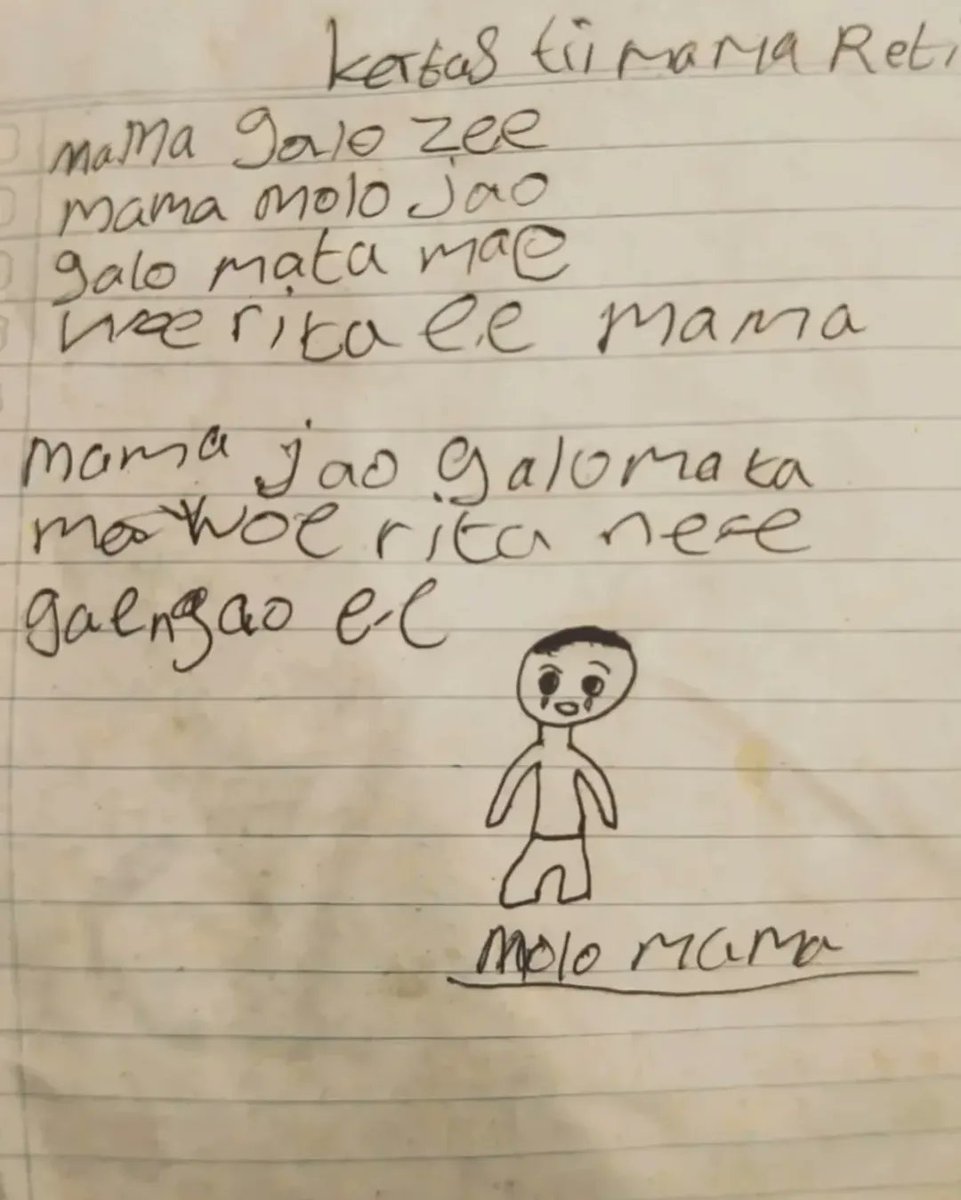 kertas tii mama Reti
mama galo zee
mama molo jao
galo mata mae
woe rita ee mama
mama jao galo mata
mae woe rita ne-e
gaengao e-e
molo mama